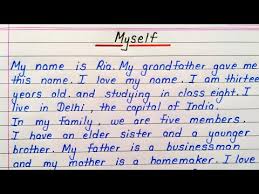 Myself
My name is Ria. My grandfather gave me
this name. I love my name. I am thirteen
years old. and studying in class eight. I
live in Delhi, the capital of India.
In my family, we are five members.
I have an elder sister and a younger
brother. My father is a businessman
and my mother is a homemaker. I love